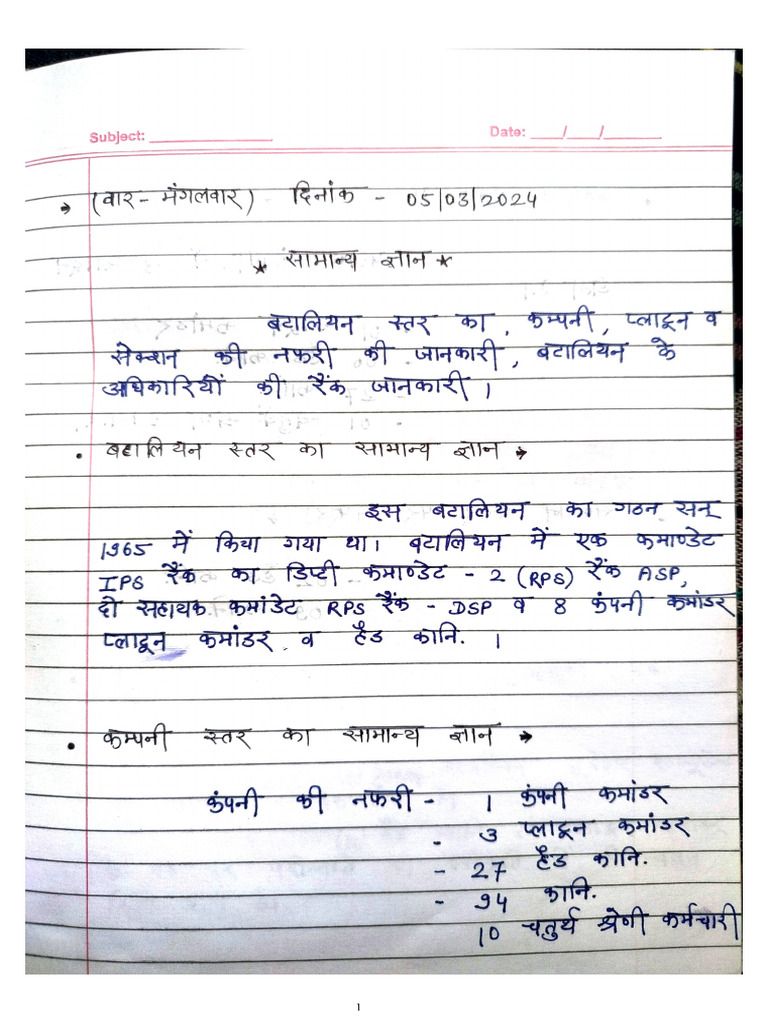 Subject: ____________ Date: ____/____/______
→ (वार - मंगलवार) दिनांक - 05/03/2024
* सामान्य ज्ञान *
बटालियन स्तर का, कम्पनी, प्लाटून व
सेक्शन की नफरी की जानकारी, बटालियन के
अधिकारियों की रैंक जानकारी।
• बटालियन स्तर का सामान्य ज्ञान →
इस बटालियन का गठन सन्
1965 में किया गया था। बटालियन में एक कमाण्डेट
IPS रैंक का डिप्टी कमाण्डेट - 2 (RPS) रैंक ASP,
दो सहायक कमांडेट RPS रैंक - DSP व 8 कंपनी कमांडर
प्लाटून कमांडर व हैड कानि. ।
• कम्पनी स्तर का सामान्य ज्ञान →
कंपनी की नफरी - 1 कंपनी कमांडर
- 3 प्लाटून कमांडर
- 27 हैड कानि.
- 94 कानि.
10 चतुर्थ श्रेणी कर्मचारी
1